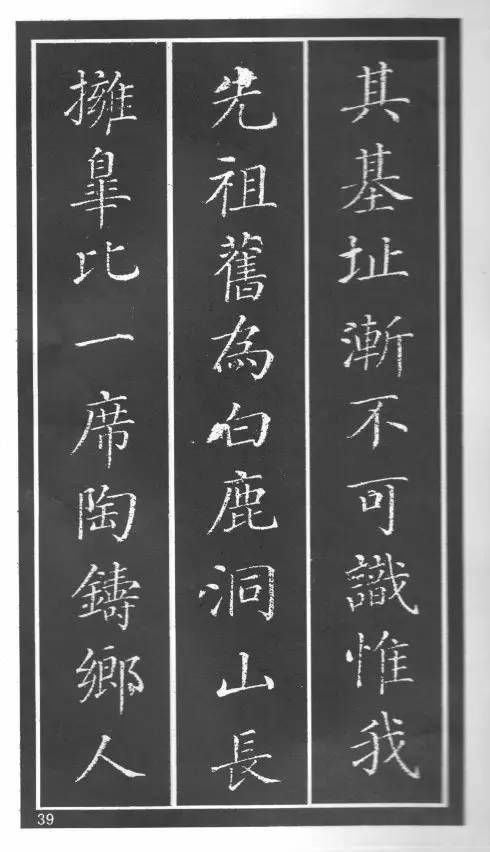 其基址漸不可識惟我
先祖舊為白鹿洞山長
擁臯比一席陶鑄鄉人
39